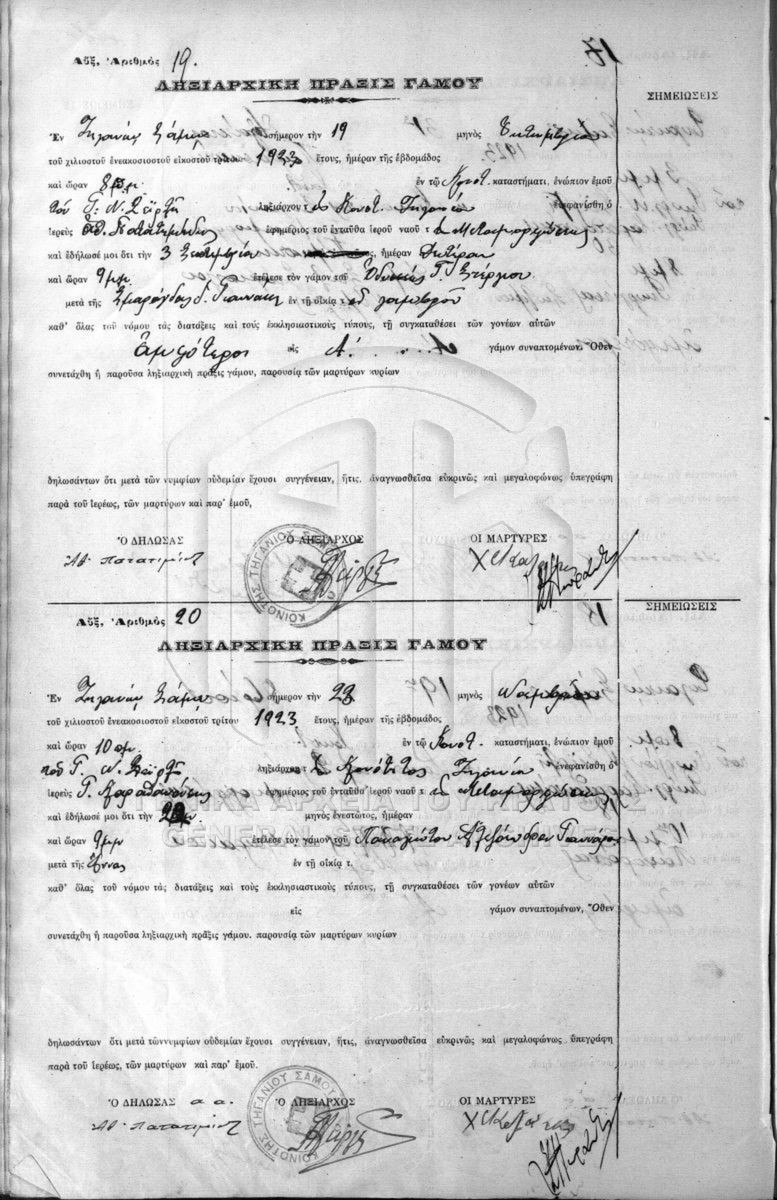 Αὔξ. Ἀριθμὸς 19.
ΛΗΞΙΑΡΧΙΚΗ ΠΡΑΞΙΣ ΓΑΜΟΥ
ΣΗΜΕΙΩΣΕΙΣ
Ἐν Τηγανίῳ Σάμου σήμερον τὴν 19 μηνὸς
τοῦ χιλιοστοῦ ἐνεακοσιοστοῦ εἰκοστοῦ τρίτου 1923 ἔτους, ἡμέραν τῆς ἑβδομάδος
καὶ ὥραν 8 πμ. ἐν τῷ Κοινοτ. καταστήματι, ἐνώπιον ἐμοῦ
τοῦ Γ. Ν. ληξιάρχου τ Κοινοτ. Τηγανίου ἐνεφανίσθη ὁ
ἱερεὺς ἐφημέριος τοῦ ἐνταῦθα ἱεροῦ ναοῦ τ Μεταμορφώσεως
καὶ ἐδήλωσέ μοι ὅτι τὴν 3 Σεπτεμβρίου ἡμέραν Δευτέραν
καὶ ὥραν 9 μμ ἐτέλεσε τὸν γάμον τοῦ Γ. Στέργιου
μετὰ τῆς Σμαράγδας Γ. Γιαννάκη ἐν τῇ οἰκίᾳ τ. οῦ γαμβροῦ
καθ᾽ ὅλας τοῦ νόμου τὰς διατάξεις καὶ τοὺς ἐκκλησιαστικοὺς τύπους, τῇ συγκαταθέσει τῶν γονέων αὐτῶν
Ἀμφότεροι εἰς Α΄. γάμον συναπτομένων. Ὅθεν
συνετάχθη ἡ παροῦσα ληξιαρχικὴ πρᾶξις γάμου, παρουσίᾳ τῶν μαρτύρων κυρίων
δηλωσάντων ὅτι μετὰ τῶν νυμφίων οὐδεμίαν ἔχουσι συγγένειαν, ἥτις, ἀναγνωσθεῖσα εὐκρινῶς καὶ μεγαλοφώνως ὑπεγράφη
παρὰ τοῦ ἱερέως, τῶν μαρτύρων καὶ παρ᾽ ἐμοῦ,
Ὁ ΔΗΛΩΣΑΣ Ὁ ΛΗΞΙΑΡΧΟΣ ΟΙ ΜΑΡΤΥΡΕΣ
ΚΟΙΝΟΤΗΣ ΤΗΓΑΝΙΟΥ ΣΑΜΟΥ
Αὔξ. Ἀριθμὸς 20
ΣΗΜΕΙΩΣΕΙΣ
ΛΗΞΙΑΡΧΙΚΗ ΠΡΑΞΙΣ ΓΑΜΟΥ
Ἐν Τηγανίῳ Σάμου σήμερον τὴν 23 μηνὸς Νοεμβρίου
τοῦ χιλιοστοῦ ἐνεακοσιοστοῦ εἰκοστοῦ τρίτου 1923 ἔτους, ἡμέραν τῆς ἑβδομάδος
καὶ ὥραν 10 πμ. ἐν τῷ Κοινοτ. καταστήματι, ἐνώπιον ἐμοῦ
τοῦ Γ. Ν. ληξιάρχου τ Κοινότητος Τηγανίου ἐνεφανίσθη ὁ
ἱερεὺς Γ. ἐφημέριος τοῦ ἐνταῦθα ἱεροῦ ναοῦ τ Μεταμορφώσεως
καὶ ἐδήλωσέ μοι ὅτι τὴν μηνὸς ἐνεστῶτος, ἡμέραν
καὶ ὥραν 9 μμ ἐτέλεσε τὸν γάμον τοῦ Παναγιώτου
μετὰ τῆς Ἄννας ἐν τῇ οἰκίᾳ τ.
καθ᾽ ὅλας τοῦ νόμου τὰς διατάξεις καὶ τοὺς ἐκκλησιαστικοὺς τύπους, τῇ συγκαταθέσει τῶν γονέων αὐτῶν
εἰς γάμον συναπτομένων, Ὅθεν
συνετάχθη ἡ παροῦσα ληξιαρχικὴ πρᾶξις γάμου. παρουσίᾳ τῶν μαρτύρων κυρίων
δηλωσάντων ὅτι μετὰ τῶν νυμφίων οὐδεμίαν ἔχουσι συγγένειαν, ἥτις, ἀναγνωσθεῖσα εὐκρινῶς καὶ μεγαλοφώνως ὑπεγράφη
παρὰ τοῦ ἱερέως, τῶν μαρτύρων καὶ παρ᾽ ἐμοῦ.
Ὁ ΔΗΛΩΣΑΣ Ὁ ΛΗΞΙΑΡΧΟΣ ΟΙ ΜΑΡΤΥΡΕΣ
ΚΟΙΝΟΤΗΣ ΤΗΓΑΝΙΟΥ ΣΑΜΟΥ